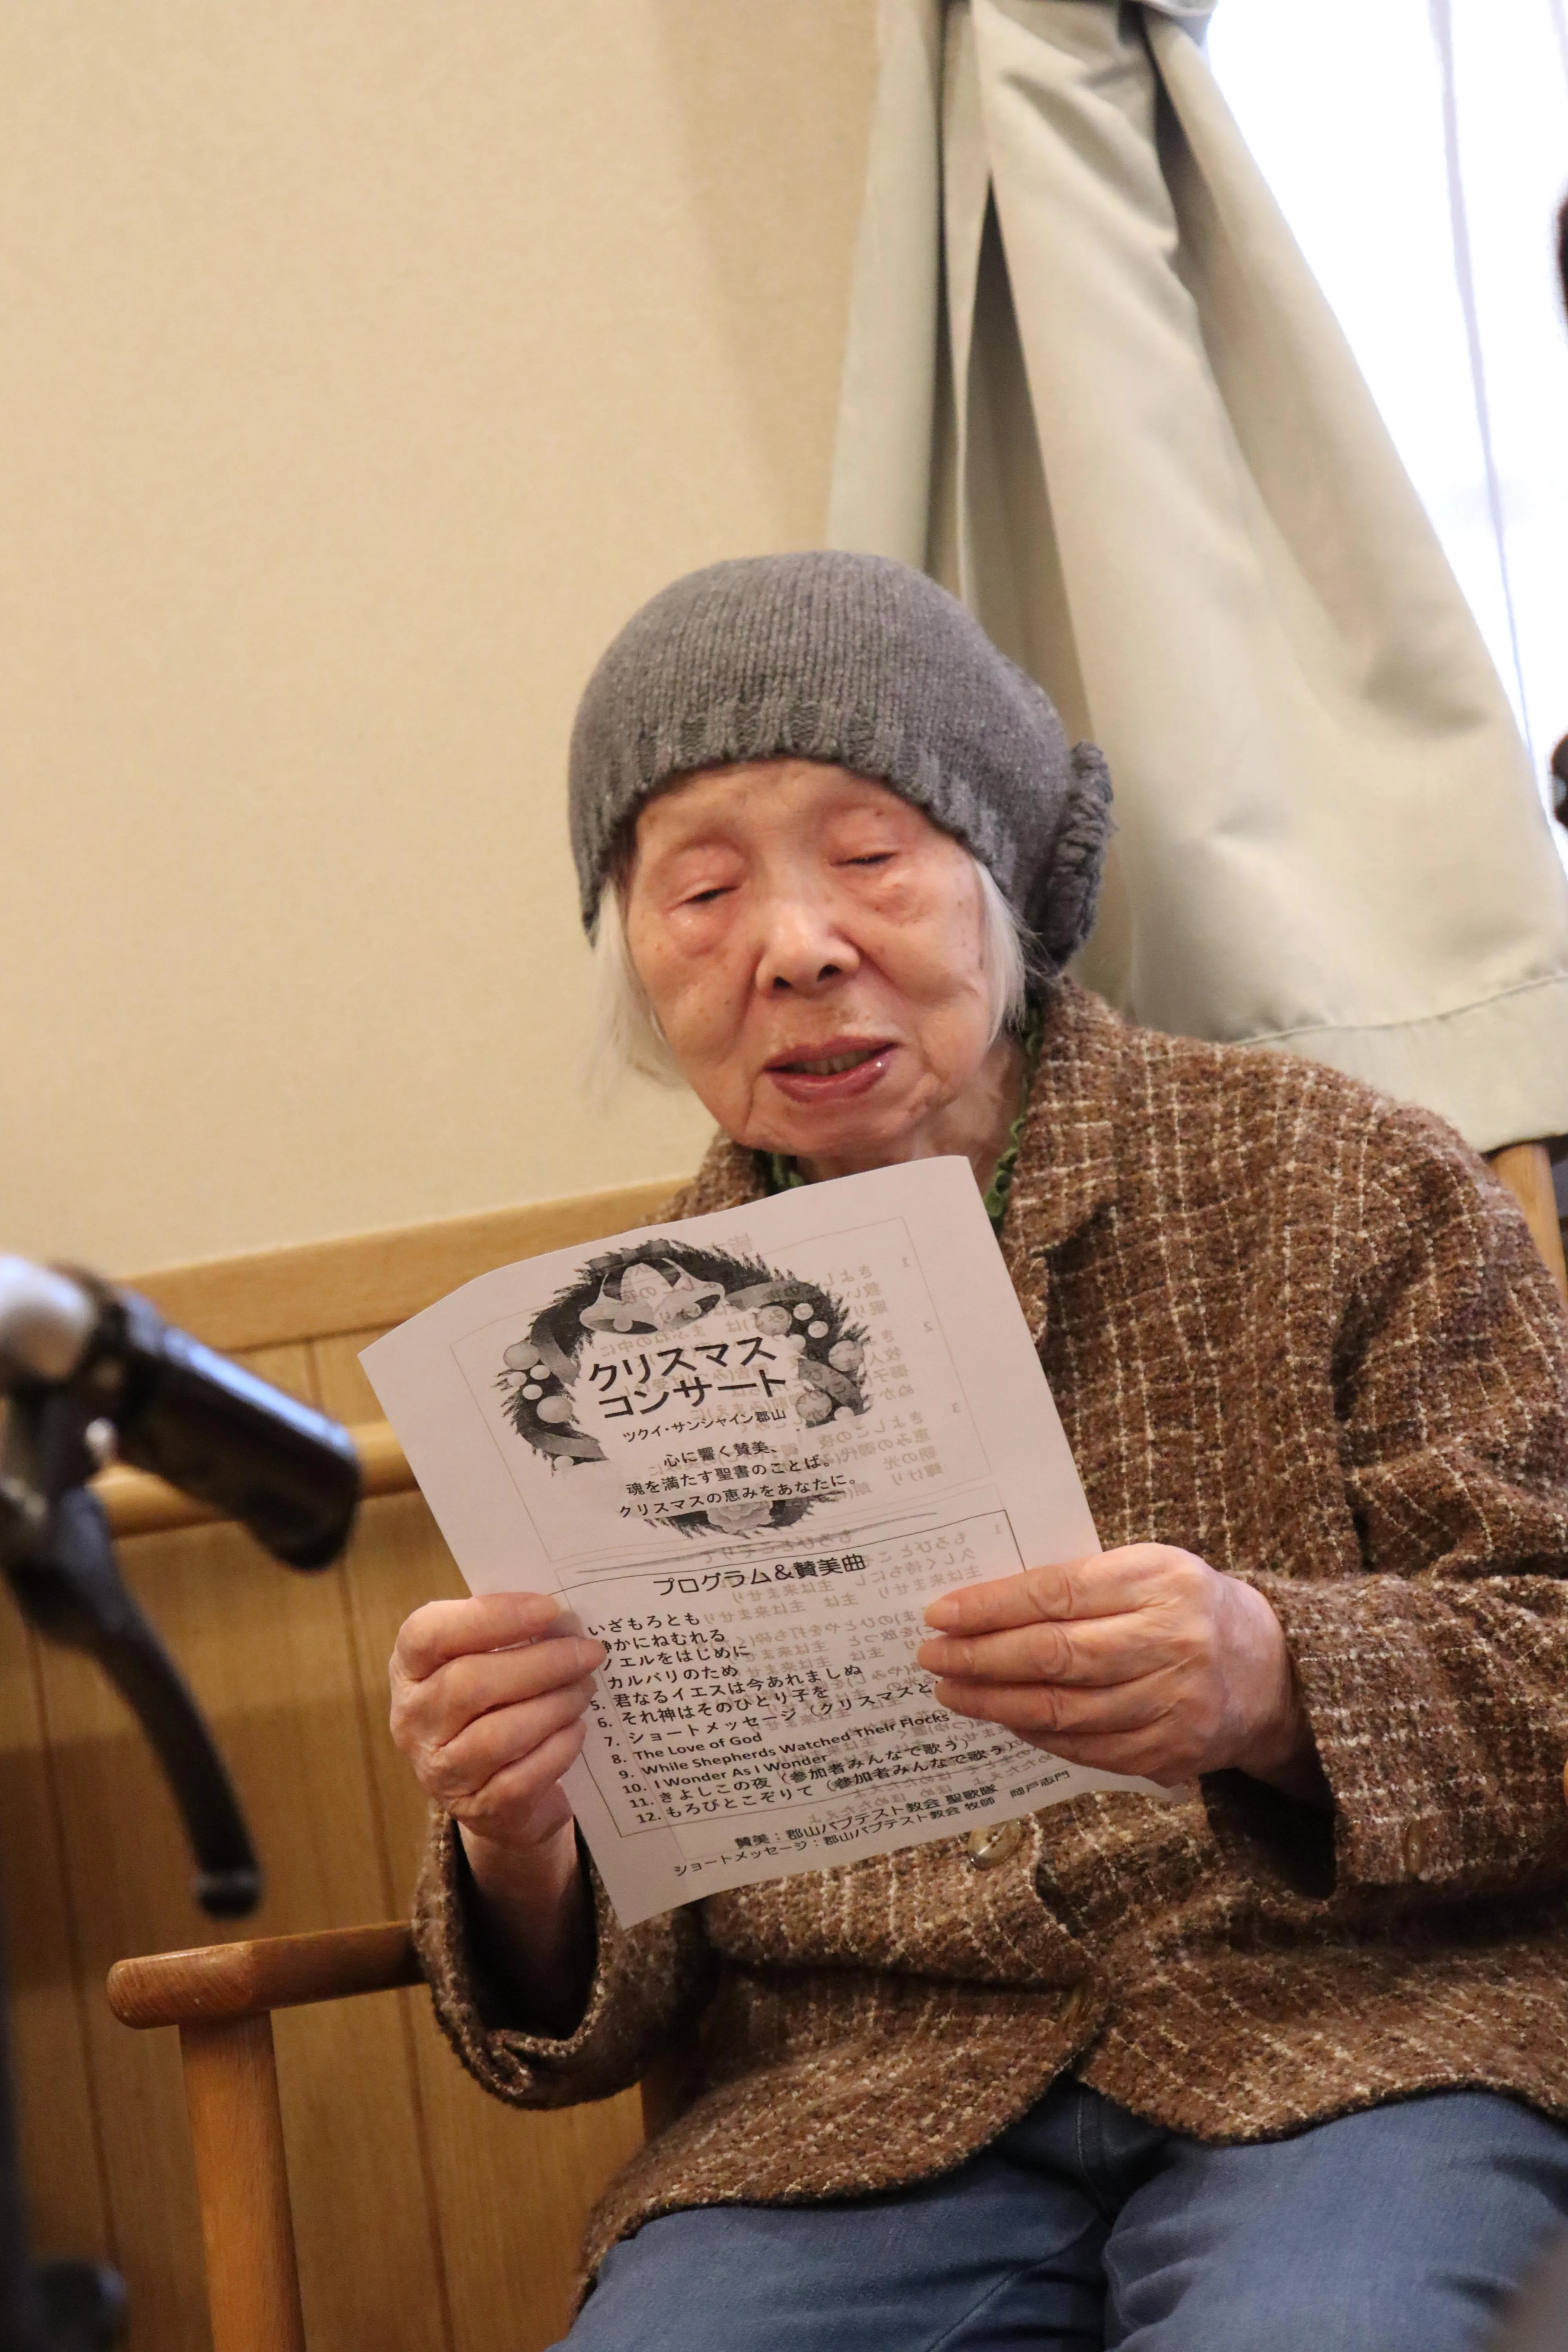 クリスマス
コンサート
ツクイ・サンシャイン郡山
心に響く賛美、
魂を満たす聖書のことば。
クリスマスの恵みをあなたに。
プログラム&賛美曲
いざもろとも
静かにねむれる
ノエルをはじめに
カルバリのため
5. 君なるイエスは今あれましぬ
6. それ神はそのひとり子を
7. ショートメッセージ（クリスマスと
8. The Love of God
9. While Shepherds Watched Their Flocks
10. I Wonder As I Wonder
11. きよしこの夜（参加者みんなで歌う）
12. もろびとこぞりて（参加者みんなで歌う）
賛美：郡山バプテスト教会 聖歌隊
ショートメッセージ：郡山バプテスト教会 牧師